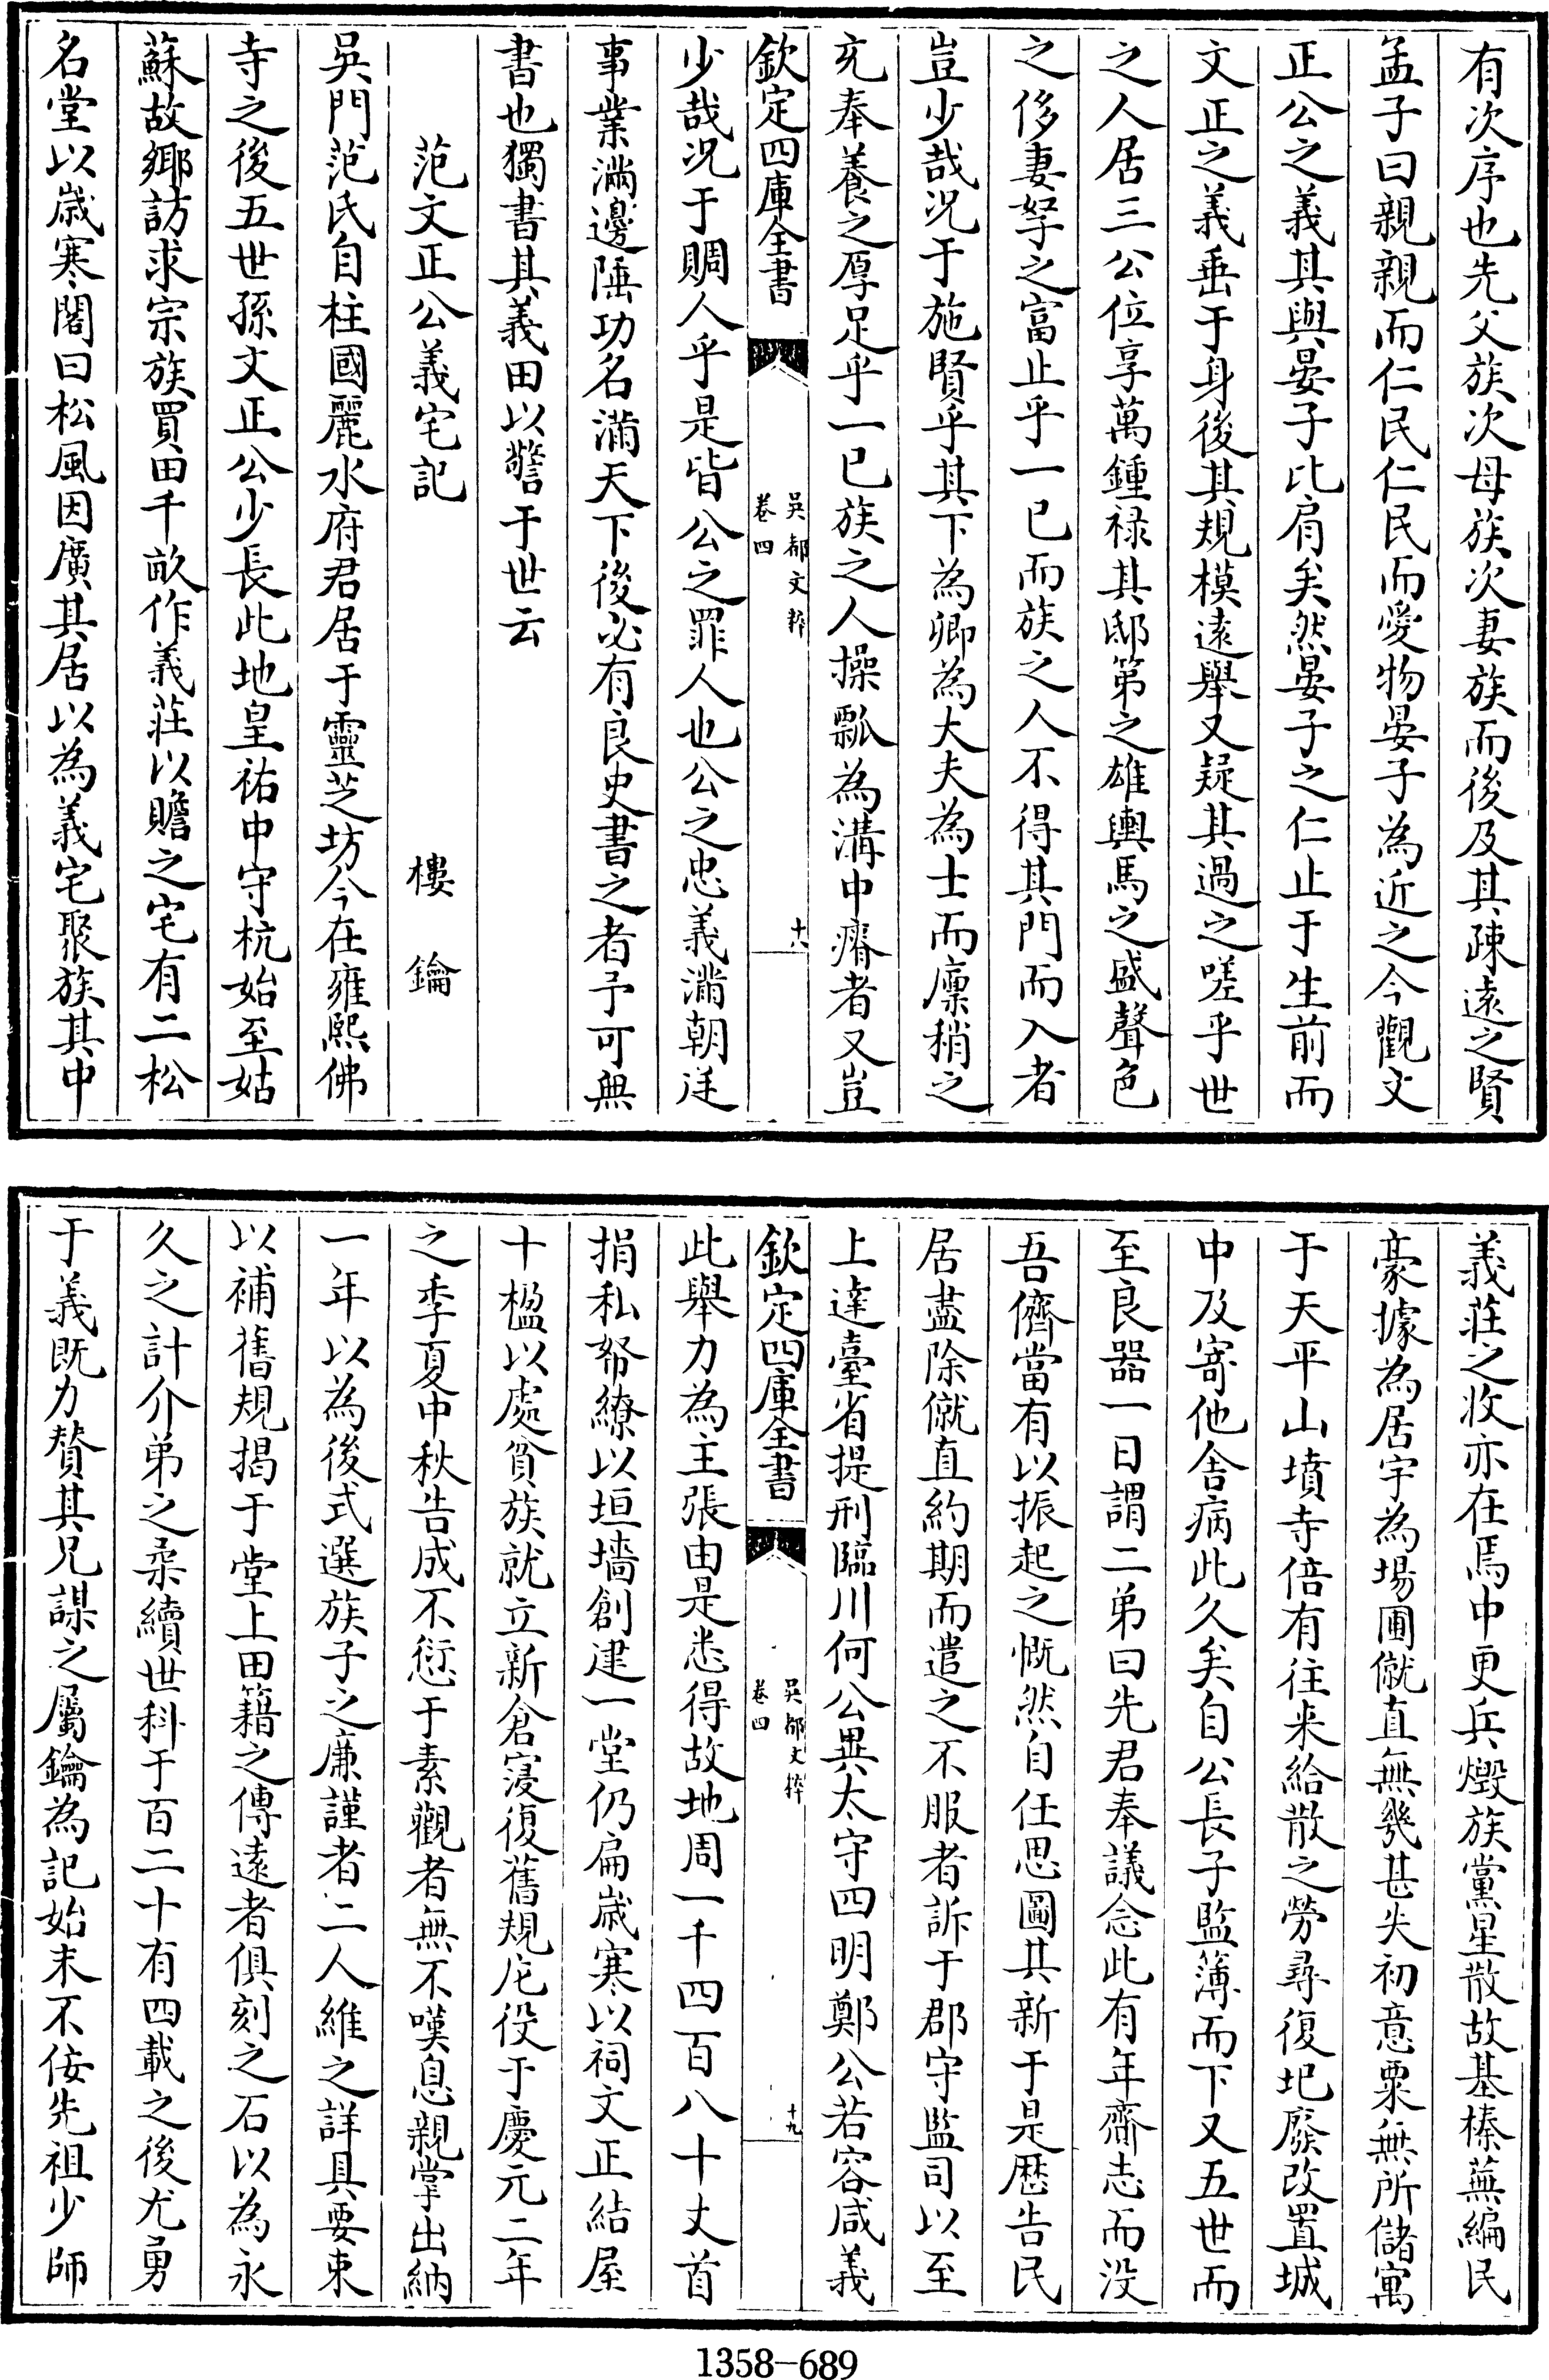 有次序也先父族次母族次妻族而後及其疎遠之賢
孟子曰親親而仁民仁民而愛物晏子為近之今觀文
正公之義其與晏子比肩矣然晏子之仁止于生前而
文正之義垂于身後其規模遠舉又疑其過之嗟乎世
之人居三公位享萬鍾禄其邸第之雄輿馬之盛聲色
之侈妻孥之富止乎一已而族之人不得其門而入者
豈少哉况于施賢乎其下為卿為大夫為士而廪稍之
充奉養之厚足乎一已族之人操瓢為溝中瘠者又豈
欽定四庫全書
吳都文粹
卷四
十八
少哉况于賙人乎是皆公之罪人也公之忠義滿朝廷
事業滿邊陲功名滿天下後必有良史書之者予可無
書也獨書其義田以警于世云
范文正公義宅記
樓鑰
吳門范氏自柱國麗水府君居于靈芝坊今在雍熙佛
寺之後五世孫文正公少長此地皇祐中守杭始至姑
蘇故鄉訪求宗族買田千畝作義莊以贍之宅有二松
名堂以歳寒閣曰松風因廣其居以為義宅聚族其中
義莊之收亦在焉中更兵燬族黨星散故基榛蕪編民
豪據為居宇為場圃僦直無幾甚失初意粟無所儲寓
于天平山墳寺倍有往来給散之勞尋復圯廢改置城
中及寄他舍病此久矣自公長子監簿而下又五世而
至良器一日謂二弟曰先君奉議念此有年齎志而没
吾儕當有以振起之慨然自任思圖其新于是歴告民
居盡除僦直約期而遣之不服者訴于郡守監司以至
上達臺省提刑臨川何公異太守四明鄭公若容咸義
欽定四庫全書
吳都文粹
卷四
十九
此舉力為主張由是悉得故地周一千四百八十丈首
捐私帑繚以垣墻創建一堂仍扁歳寒以祠文正結屋
十楹以處貧族就立新倉寖復舊規庀役于慶元二年
之季夏中秋告成不愆于素觀者無不嘆息親掌出納
一年以為後式選族子之廉謹者二人維之詳具要束
以補舊規揭于堂上田籍之傳遠者俱刻之石以為永
久之計介弟之柔續世科于百二十有四載之後尤勇
于義既力賛其兄謀之屬鑰為記始末不佞先祖少師
1358-689